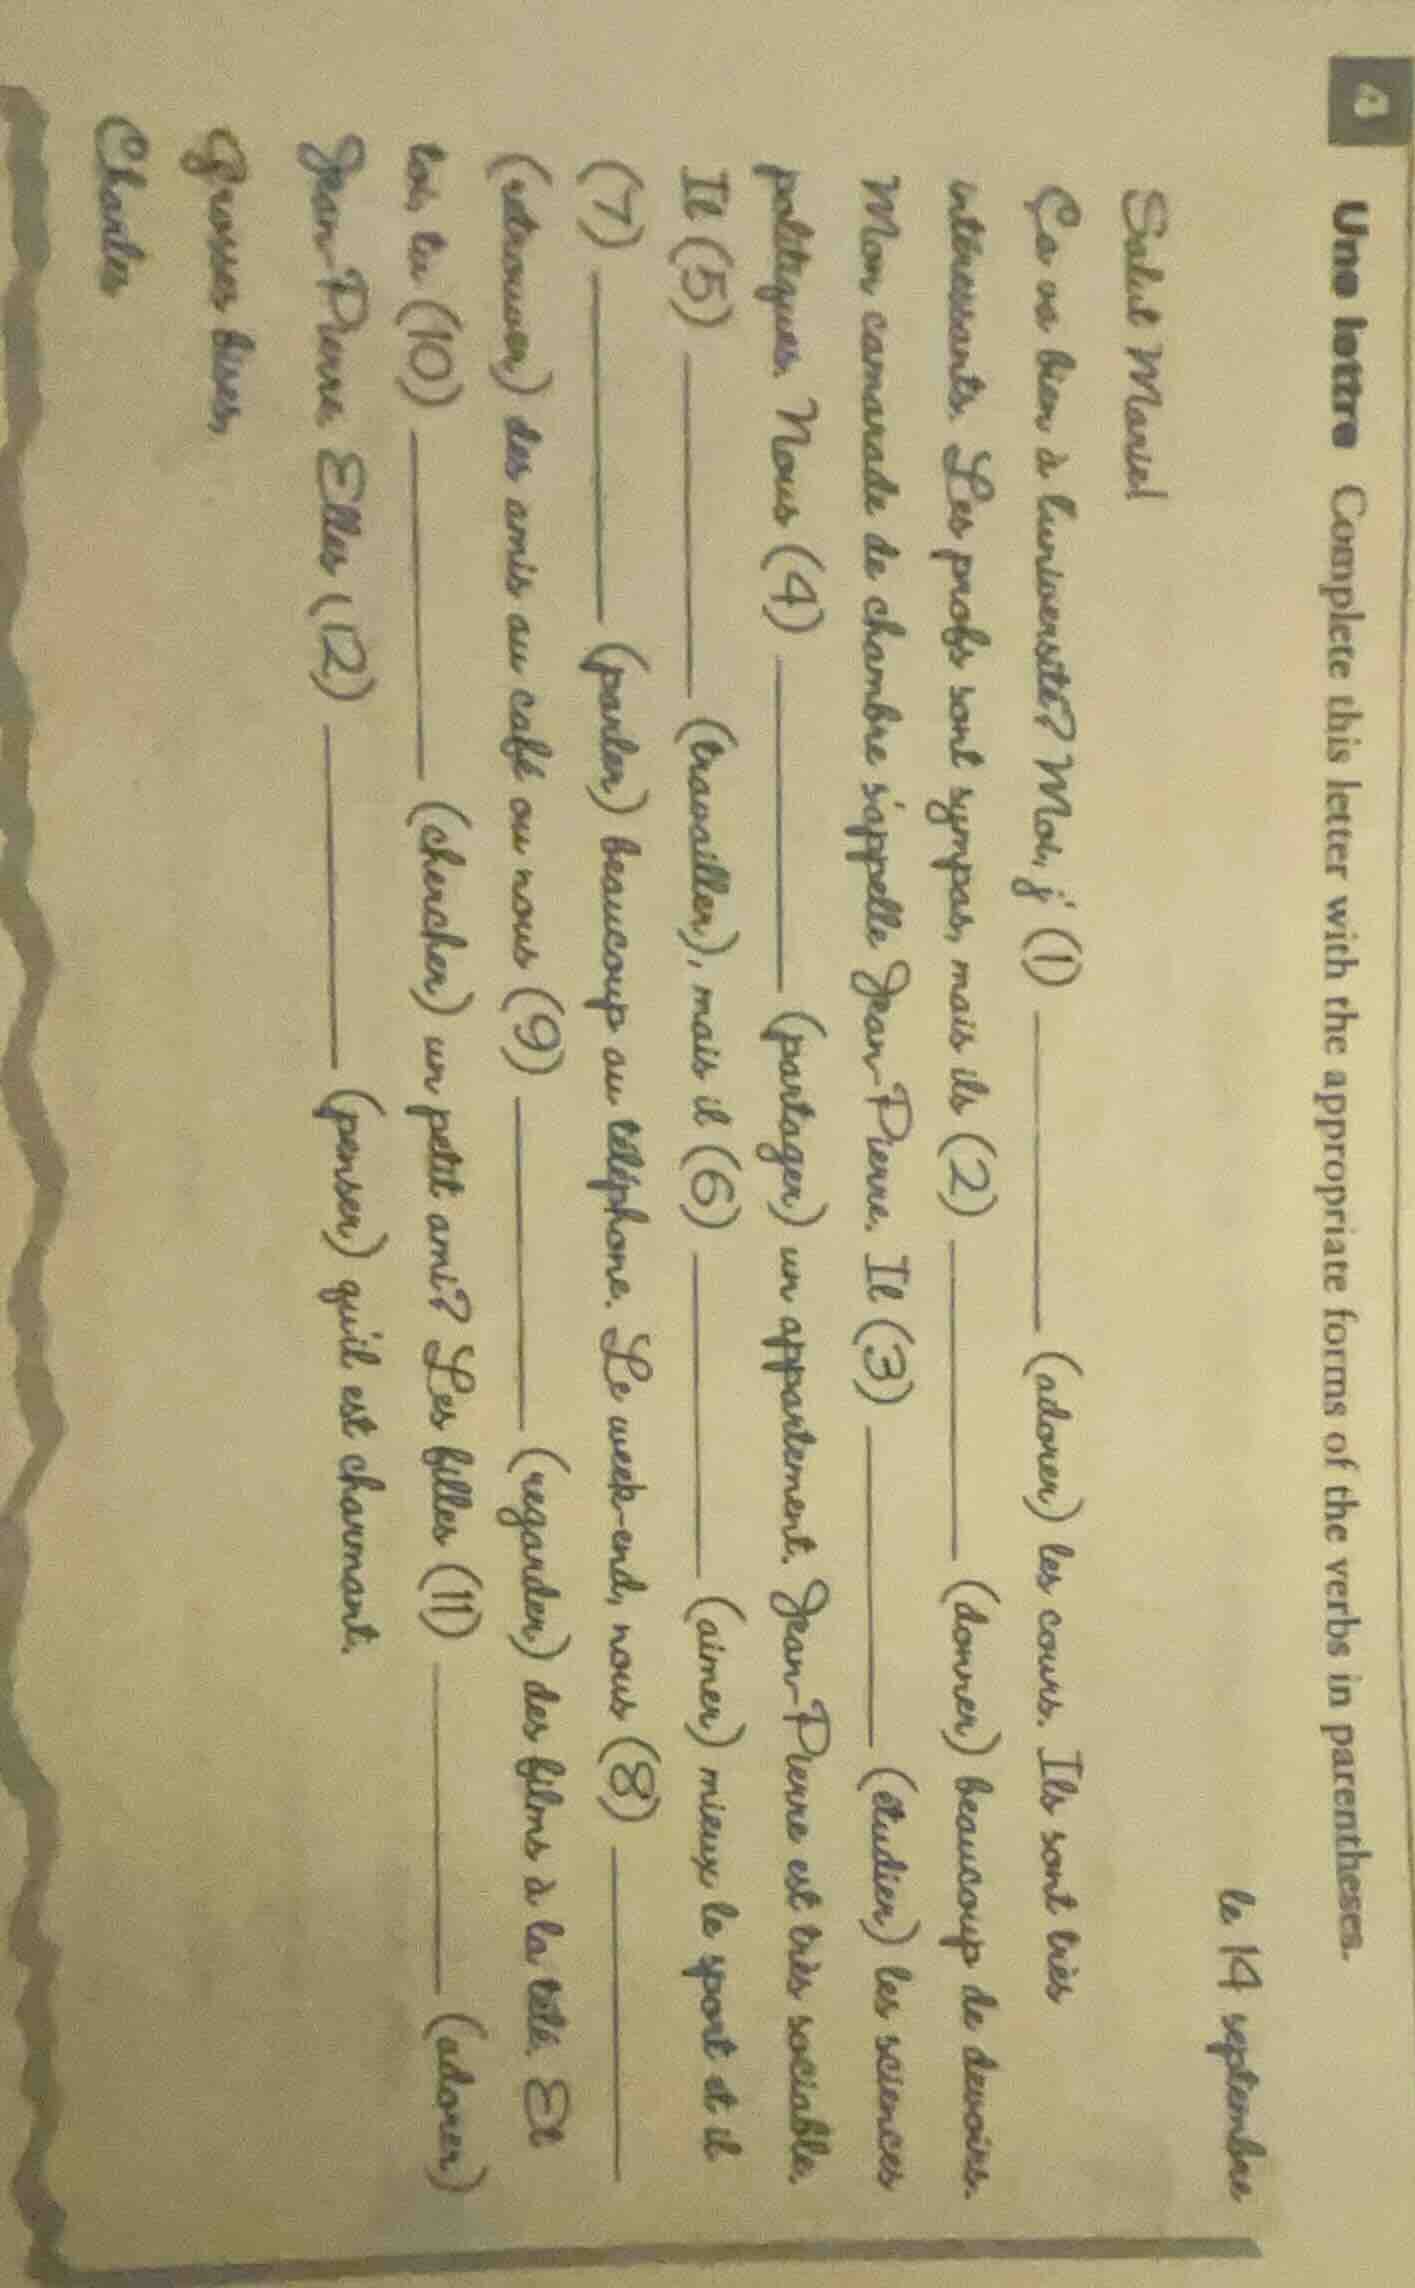 4 Une lettre Complete this letter with the appropriate forms of the verbs in parentheses.
le 14 septembre
Salut Marie!
Ça va bien à l'université? Moi, j' (1) __________ (adorer) les cours. Ils sont très
intéressants. Les profs sont sympas, mais ils (2) __________ (donner) beaucoup de devoirs.
Mon camarade de chambre s'appelle Jean-Pierre. Il (3) __________ (étudier) les sciences
politiques. Nous (4) __________ (partager) un appartement. Jean-Pierre est très sociable.
Il (5) __________ (travailler), mais il (6) __________ (aimer) mieux le sport et il
(7) __________ (parler) beaucoup au téléphone. Le week-end, nous (8) __________
(retrouver) des amis au café ou nous (9) __________ (regarder) des films à la télé. Et
toi, tu (10) __________ (chercher) un petit ami? Les filles (11) __________ (adorer)
Jean-Pierre. Elles (12) __________ (penser) qu'il est charmant.
Grosses bises,
Charles